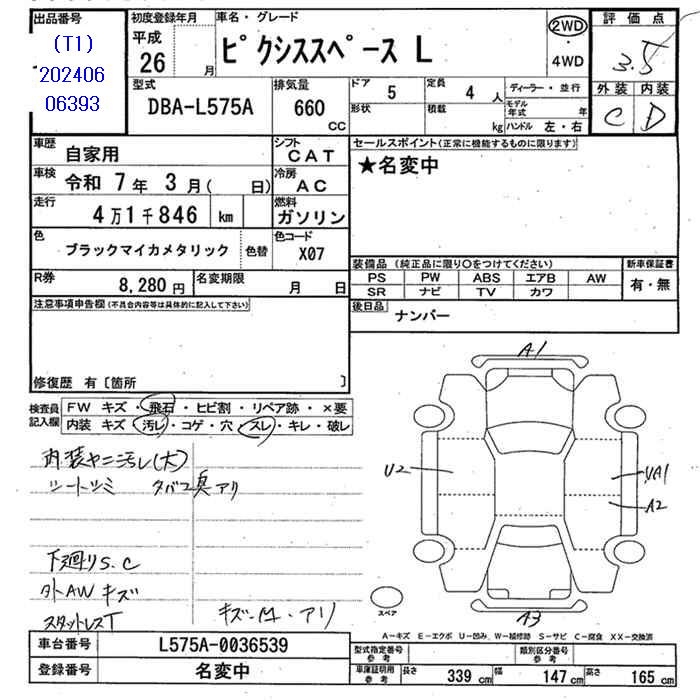 出品番号
(T1)
202406
06393
初度登録年月
平成
26 月
車名・グレード
ピクシススペース L
2WD
・
4WD
評価点
3.5
外装 内装
C D
型式
DBA-L575A
排気量
660
CC
ドア 5
形状
定員 4 人
積載 kg
ディーラー・並行
モデル年式 年
ハンドル 左・右
車歴 自家用
シフト CAT
車検 令和 7年 3月( 日)
冷房 AC
走行 4万1千846 km
燃料 ガソリン
色 ブラックマイカメタリック 色替
色コード X07
R券 8,280円
名変期限 月 日
セールスポイント(正常に機能するものに限ります)
★名変中
装備品(純正品に限り○をつけてください)
PS PW ABS エアB AW
SR ナビ TV カワ
新車保証書
有・無
後日品 ナンバー
注意事項申告欄(不具合内容等は具体的に記入して下さい)
修復歴 有〔箇所 〕
検査員記入欄
FW キズ・飛石・ヒビ割・リペア跡・×要
内装 キズ・汚レ・コゲ・穴・スレ・キレ・破レ
内装ヤニ汚レ(大)
シートシミ タバコ臭アリ
下廻りS.C
外AWキズ
スタットレスT
キズ・凹・アリ
A1
U2
UA1
A2
A3
スペア
A－キズ E－エクボ U－凹み W－補修跡 S－サビ C－腐食 XX－交換済
車台番号 L575A-0036539
登録番号 名変中
型式指定番号 参考
類別区分番号 参考
車庫証明用 参考
長さ 339 cm 幅 147 cm 高さ 165 cm